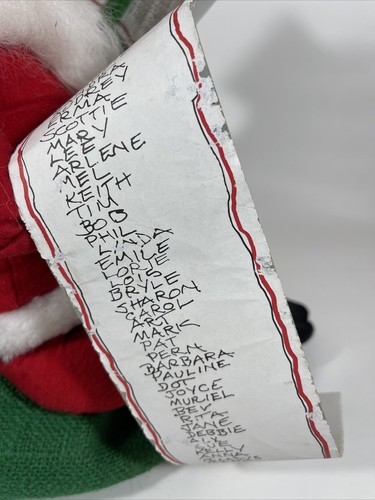 SCOTTIE
MARY
LEE
ARLENE
MEL
KEITH
TIM
BOB
PHIL
LINDA
EMILE
LORIE
LOIS
BRYLE
SHARON
CAROL
ART
MARK
PAT
FERN
BARBARA
PAULINE
DOT
JOYCE
MURIEL
BEV
RITA
JANE
DEBBIE